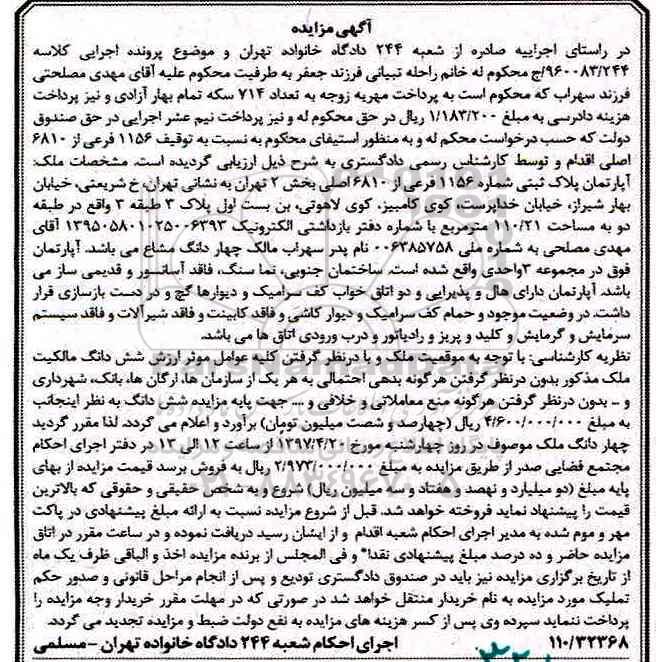 آگهی مزایده
در راستای اجراییه صادره از شعبه ۲۴۴ دادگاه خانواده تهران و موضوع پرونده اجرایی کلاسه
۹۶۰۰۸۳/۲۴۴/ج محکوم له خانم راحله تبیانی فرزند جعفر به طرفیت محکوم علیه آقای مهدی مصلحتی
فرزند سهراب که محکوم است به پرداخت مهریه زوجه به تعداد ۷۱۴ سکه تمام بهار آزادی و نیز پرداخت
هزینه دادرسی به مبلغ ۱/۱۸۳/۲۰۰ ریال در حق محکوم له و نیز پرداخت نیم عشر اجرایی در حق صندوق
دولت که حسب درخواست محکم له و به منظور استیفای محکوم به نسبت به توقیف ۱۱۵۶ فرعی از ۶۸۱۰
اصلی اقدام و توسط کارشناس رسمی دادگستری به شرح ذیل ارزیابی گردیده است. مشخصات ملک:
آپارتمان پلاک ثبتی شماره ۱۱۵۶ فرعی از ۶۸۱۰ اصلی بخش ۲ تهران به نشانی تهران، خ شریعتی، خیابان
بهار شیراز، خیابان خداپرست، کوی کامبیز، کوی لاهوتی، بن بست اول پلاک ۳ طبقه ۳ واقع در طبقه
دو به مساحت ۱۱۰/۲۱ مترمربع با شماره دفتر بازداشتی الکترونیک ۱۳۹۵۰۵۸۰۱۰۲۵۰۰۶۳۹۳ آقای
مهدی مصلحی به شماره ملی ۰۰۶۳۸۵۷۵۸ نام پدر سهراب مالک چهار دانگ مشاع می باشد. آپارتمان
فوق در مجموعه ۳واحدی واقع شده است. ساختمان جنوبی، نما سنگ، فاقد آسانسور و قدیمی ساز می
باشد. آپارتمان دارای هال و پذیرایی و دو اتاق خواب کف سرامیک و دیوارها گچ و در دست بازسازی قرار
داشت. در وضعیت موجود و حمام کف سرامیک و دیوار کاشی و فاقد کابینت و فاقد شیرآلات و فاقد سیستم
سرمایش و گرمایش و کلید و پریز و رادیاتور و درب ورودی اتاق ها می باشد.
نظریه کارشناسی: با توجه به موقعیت ملک و با درنظر گرفتن کلیه عوامل موثر ارزش شش دانگ مالکیت
ملک مذکور بدون درنظر گرفتن هرگونه بدهی احتمالی به هر یک از سازمان ها، ارگان ها، بانک، شهرداری
و ... بدون درنظر گرفتن هرگونه منع معاملاتی و خلافی و .... جهت پایه مزایده شش دانگ به نظر اینجانب
به مبلغ ۴/۶۰۰/۰۰۰/۰۰۰ ریال (چهارصد و شصت میلیون تومان) برآورد و اعلام می گردد. لذا مقرر گردید
چهار دانگ ملک موصوف در روز چهارشنبه مورخ ۱۳۹۷/۴/۲۰ از ساعت ۱۲ الی ۱۳ در دفتر اجرای احکام
مجتمع قضایی صدر از طریق مزایده به مبلغ ۲/۹۷۳/۰۰۰/۰۰۰ ریال به فروش برسد قیمت مزایده از بهای
پایه مبلغ (دو میلیارد و نهصد و هفتاد و سه میلیون ریال) شروع و به شخص حقیقی و حقوقی که بالاترین
قیمت را پیشنهاد نماید فروخته خواهد شد. قبل از شروع مزایده نسبت به ارائه مبلغ پیشنهادی در پاکت
مهر و موم شده به مدیر اجرای احکام شعبه اقدام و از ایشان رسید دریافت نموده و در ساعت مقرر در اتاق
مزایده حاضر و ده درصد مبلغ پیشنهادی نقدا* و فی المجلس از برنده مزایده اخذ و الباقی ظرف یک ماه
از تاریخ برگزاری مزایده نیز باید در صندوق دادگستری تودیع و پس از انجام مراحل قانونی و صدور حکم
تملیک مورد مزایده به نام خریدار منتقل خواهد شد در صورتی که در مهلت مقرر خریدار وجه مزایده را
پرداخت ننماید سپرده وی پس از کسر هزینه های مزایده به نفع دولت ضبط و مزایده تجدید می گردد.
۱۱۰/۳۲۳۶۸ اجرای احکام شعبه ۲۴۴ دادگاه خانواده تهران -مسلمی